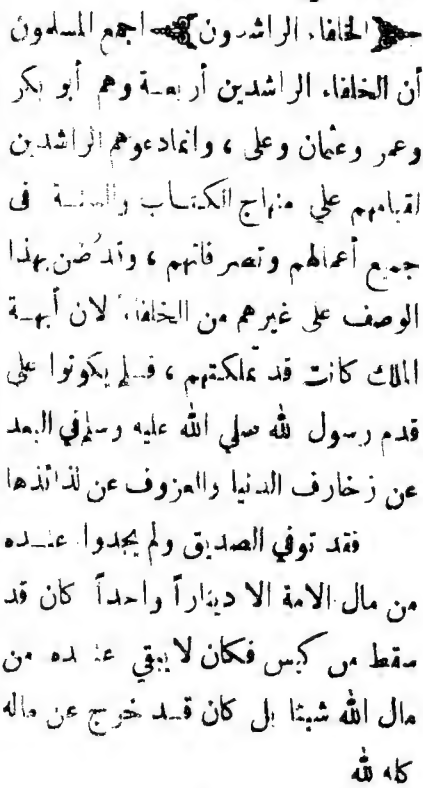 ﴿الخلفاء الراشدون﴾ اجمع المسلمون
أن الخلفاء الراشدين أربعة وهم أبو بكر
وعمر وعثمان وعلى ، وانما دعوهم الراشدين
لقيامهم علي منهاج الكتاب والسنة فى
جميع أعمالهم وتصرفاتهم ، وقد ضُن بهذا
الوصف على غيرهم من الخلفاء لان أبهة
الملك كانت قد تملكتهم ، فلم يكونوا على
قدم رسول الله صلي الله عليه وسلم في البعد
عن زخارف الدنيا والعزوف عن لذائذها
فقد توفي الصديق ولم يجدوا عنده
من مال الامة الا ديناراً واحداً كان قد
سقط من كيس فكان لا يبقي عنده من
مال الله شيئا بل كان قد خرج عن ماله
كله لله